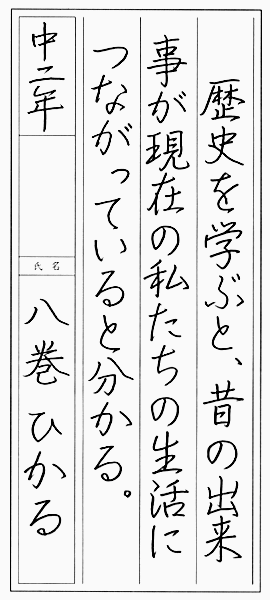 歴史を学ぶと、昔の出来
事が現在の私たちの生活に
つながっていると分かる。
中二年
氏名
八巻ひかる